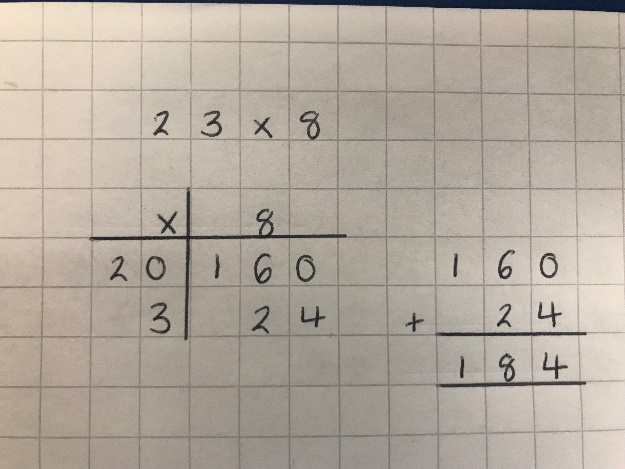 23 x 8
x 8
20 160
3 24
160
+ 24
184